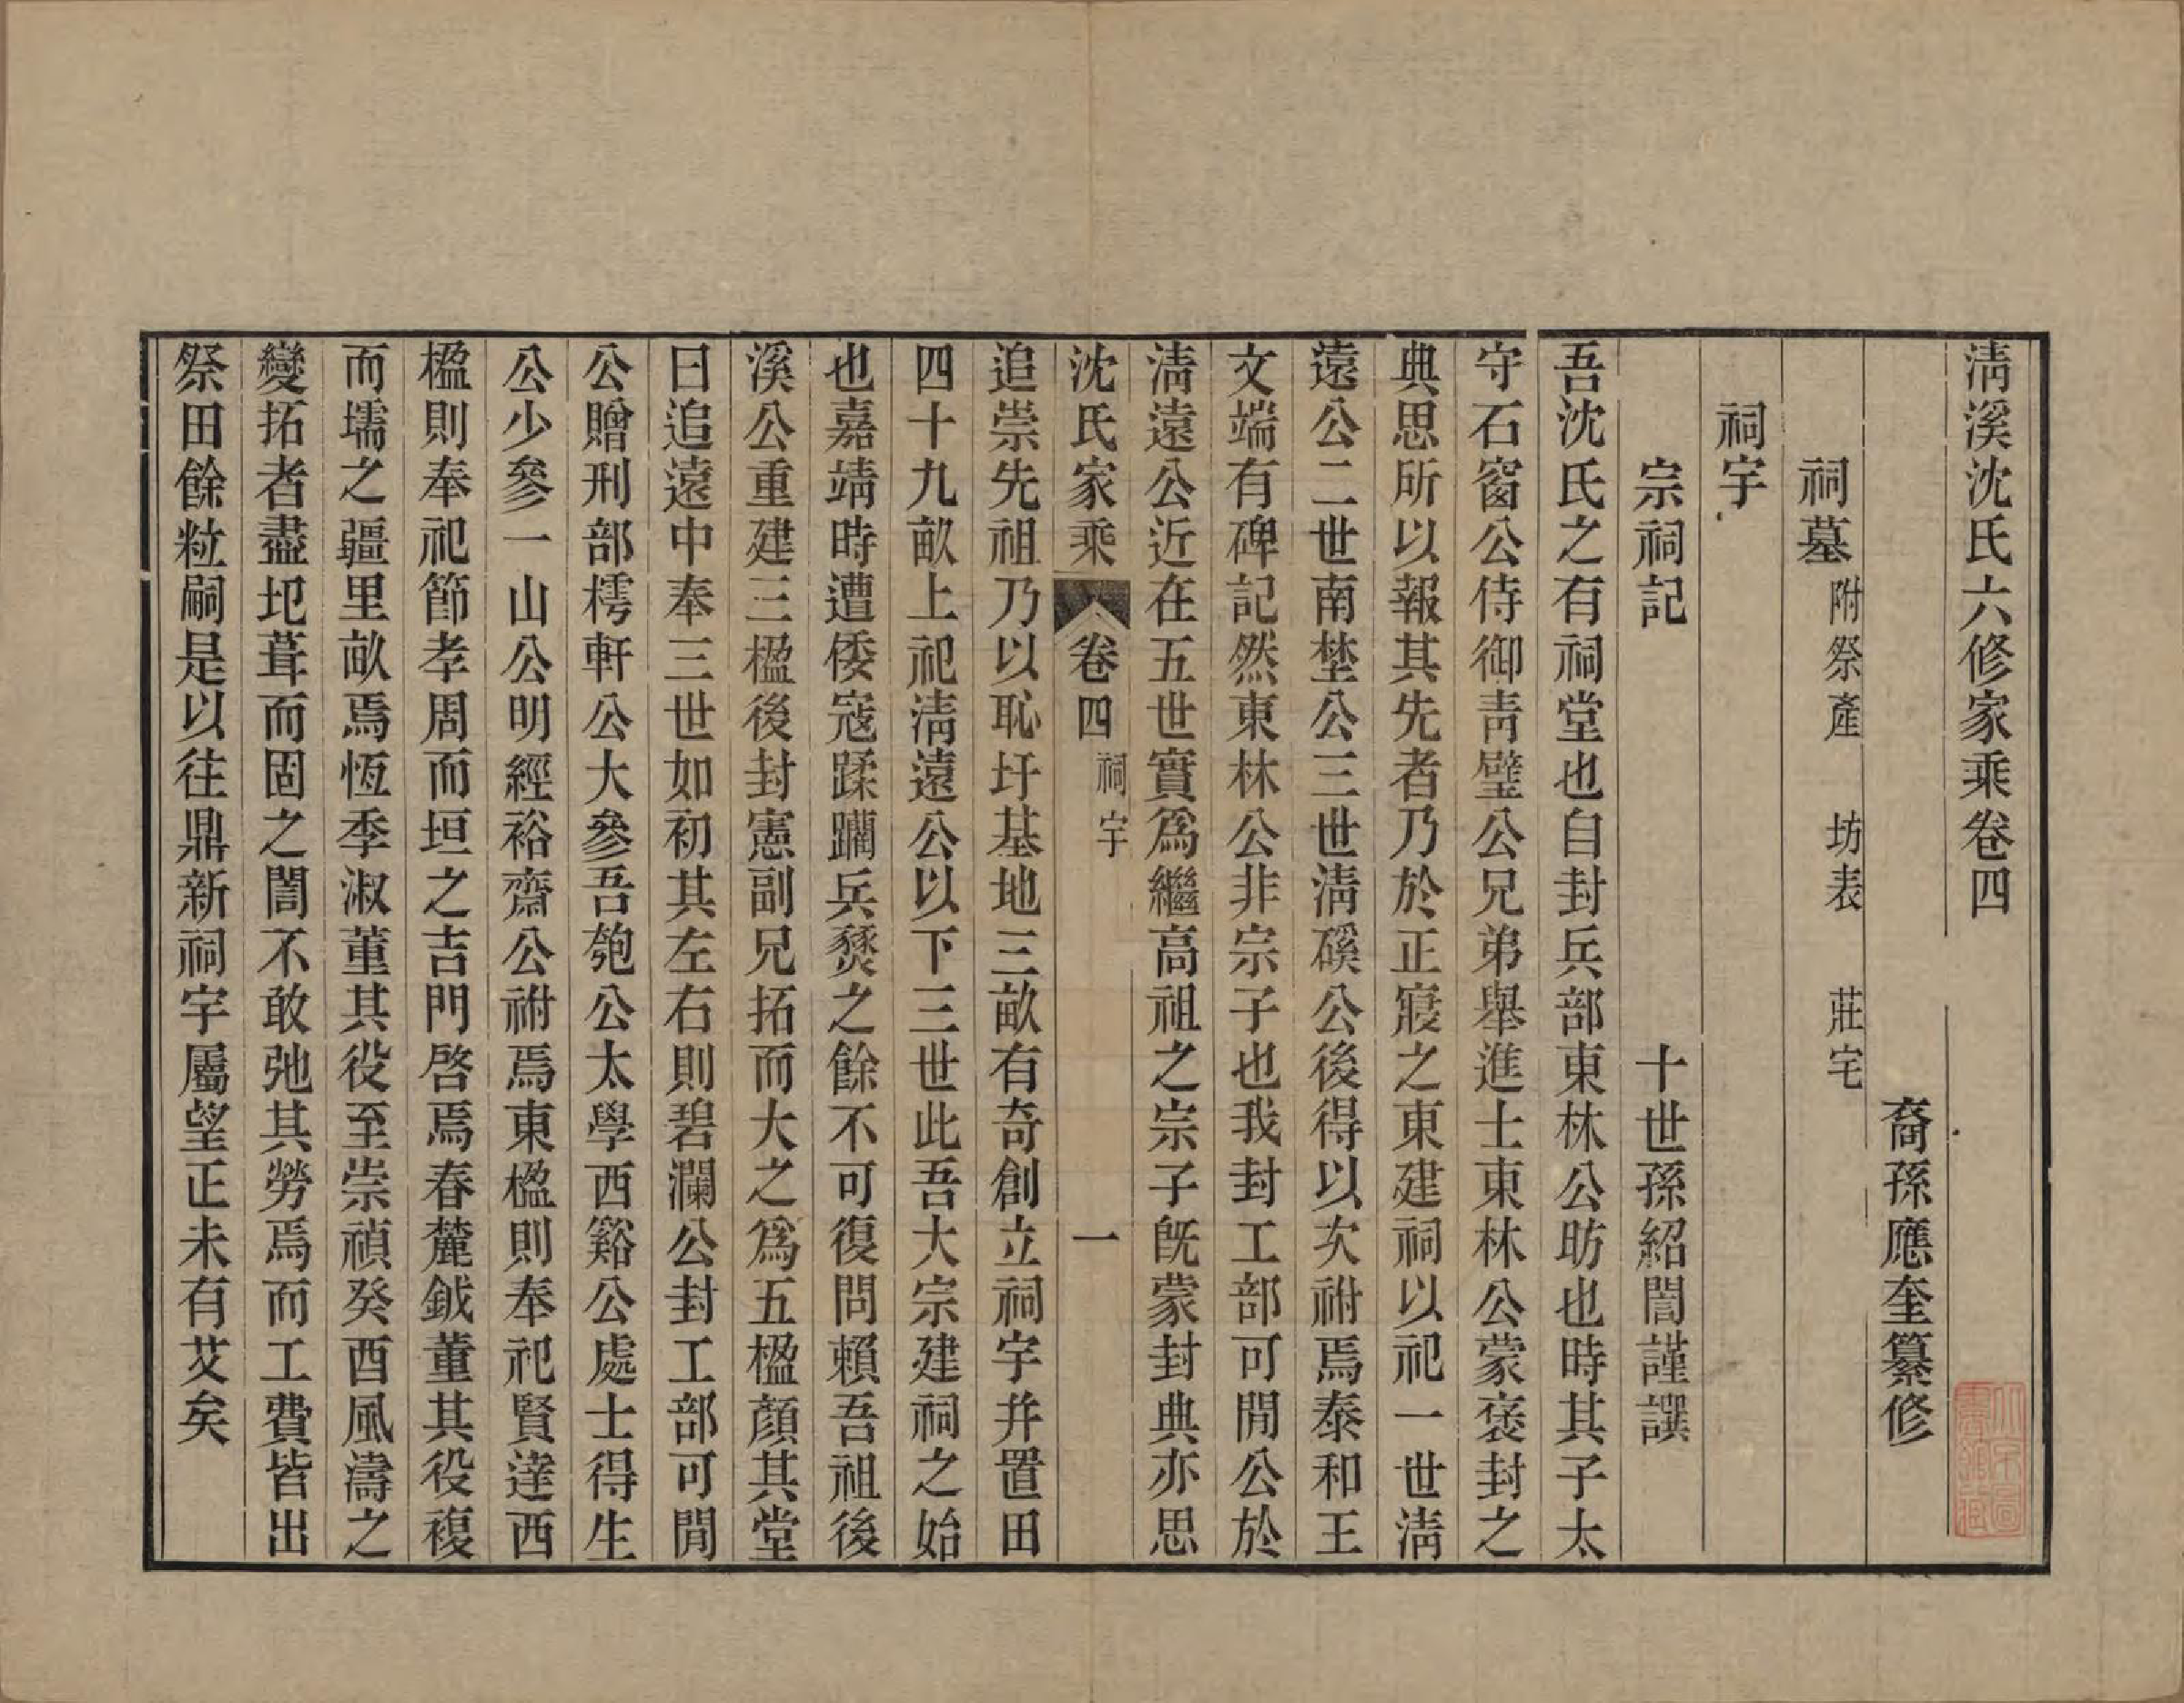 淸溪沈氏六修家乘卷四
裔孫應奎纂修
祠墓 附祭產 坊表 莊宅
祠宇
宗祠記 十世孫紹誾謹譔
吾沈氏之有祠堂也自封兵部東林公昉也時其子太
守石窗公侍御靑璧公兄弟舉進士東林公蒙褒封之
典思所以報其先者乃於正寢之東建祠以祀一世淸
遠公二世南埜公三世淸磎公後得以次祔焉泰和王
文端有碑記然東林公非宗子也我封工部可閒公於
淸遠公近在五世實爲繼高祖之宗子旣蒙封典亦思
沈氏家乘 卷四 祠宇 一
追崇先祖乃以恥圩基地三畝有奇創立祠宇幷置田
四十九畝上祀淸遠公以下三世此吾大宗建祠之始
也嘉靖時遭倭寇蹂躪兵燹之餘不可復問賴吾祖後
溪公重建三楹後封憲副兄拓而大之爲五楹顏其堂
曰追遠中奉三世如初其左右則碧瀾公封工部可閒
公贈刑部樗軒公大參吾匏公太學西谿公處士得生
公少參一山公明經裕齋公祔焉東楹則奉祀賢達西
楹則奉祀節孝周而垣之吉門啓焉春麓鉞董其役複
而壖之疆里畝焉恆季淑董其役至崇禎癸酉風濤之
變拓者盡圯葺而固之誾不敢弛其勞焉而工費皆出
祭田餘粒嗣是以往鼎新祠宇屬望正未有艾矣